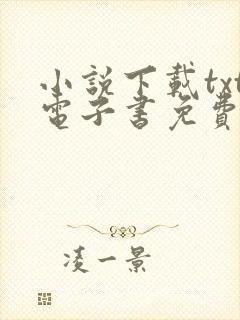 小說下載txt
電子書免費
凌一景